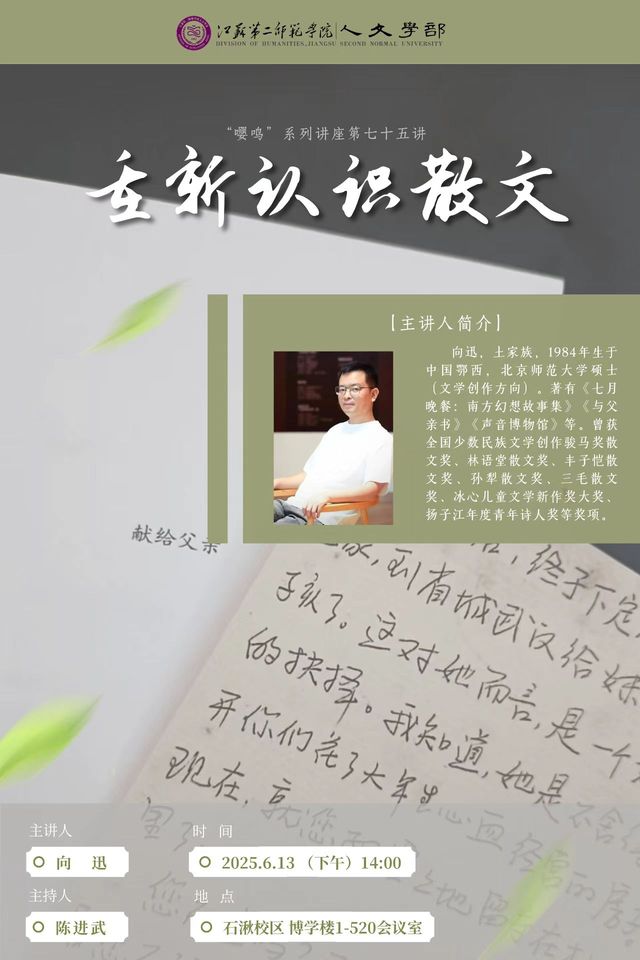 江苏第二师范学院 | 人文学部
DIVISION OF HUMANITIES, JIANGSU SECOND NORMAL UNIVERSITY
“嘤鸣”系列讲座第七十五讲
重新认识散文
【主讲人简介】
向迅，土家族，1984年生于
中国鄂西，北京师范大学硕士
（文学创作方向）。著有《七月
晚餐：南方幻想故事集》《与父
亲书》《声音博物馆》等。曾获
全国少数民族文学创作骏马奖散
文奖、林语堂散文奖、丰子恺散
文奖、孙犁散文奖、三毛散文
奖、冰心儿童文学新作奖大奖、
扬子江年度青年诗人奖等奖项。
献给父亲
终于下定
到省城武汉给妹
孩子。这对她而言，是一个
的抉择。我知道，她是不舍得
开你们花了大半生心血
现在，
主讲人
向 迅
时 间
2025.6.13 （下午）14:00
主持人
陈进武
地 点
石湫校区 博学楼1-520会议室